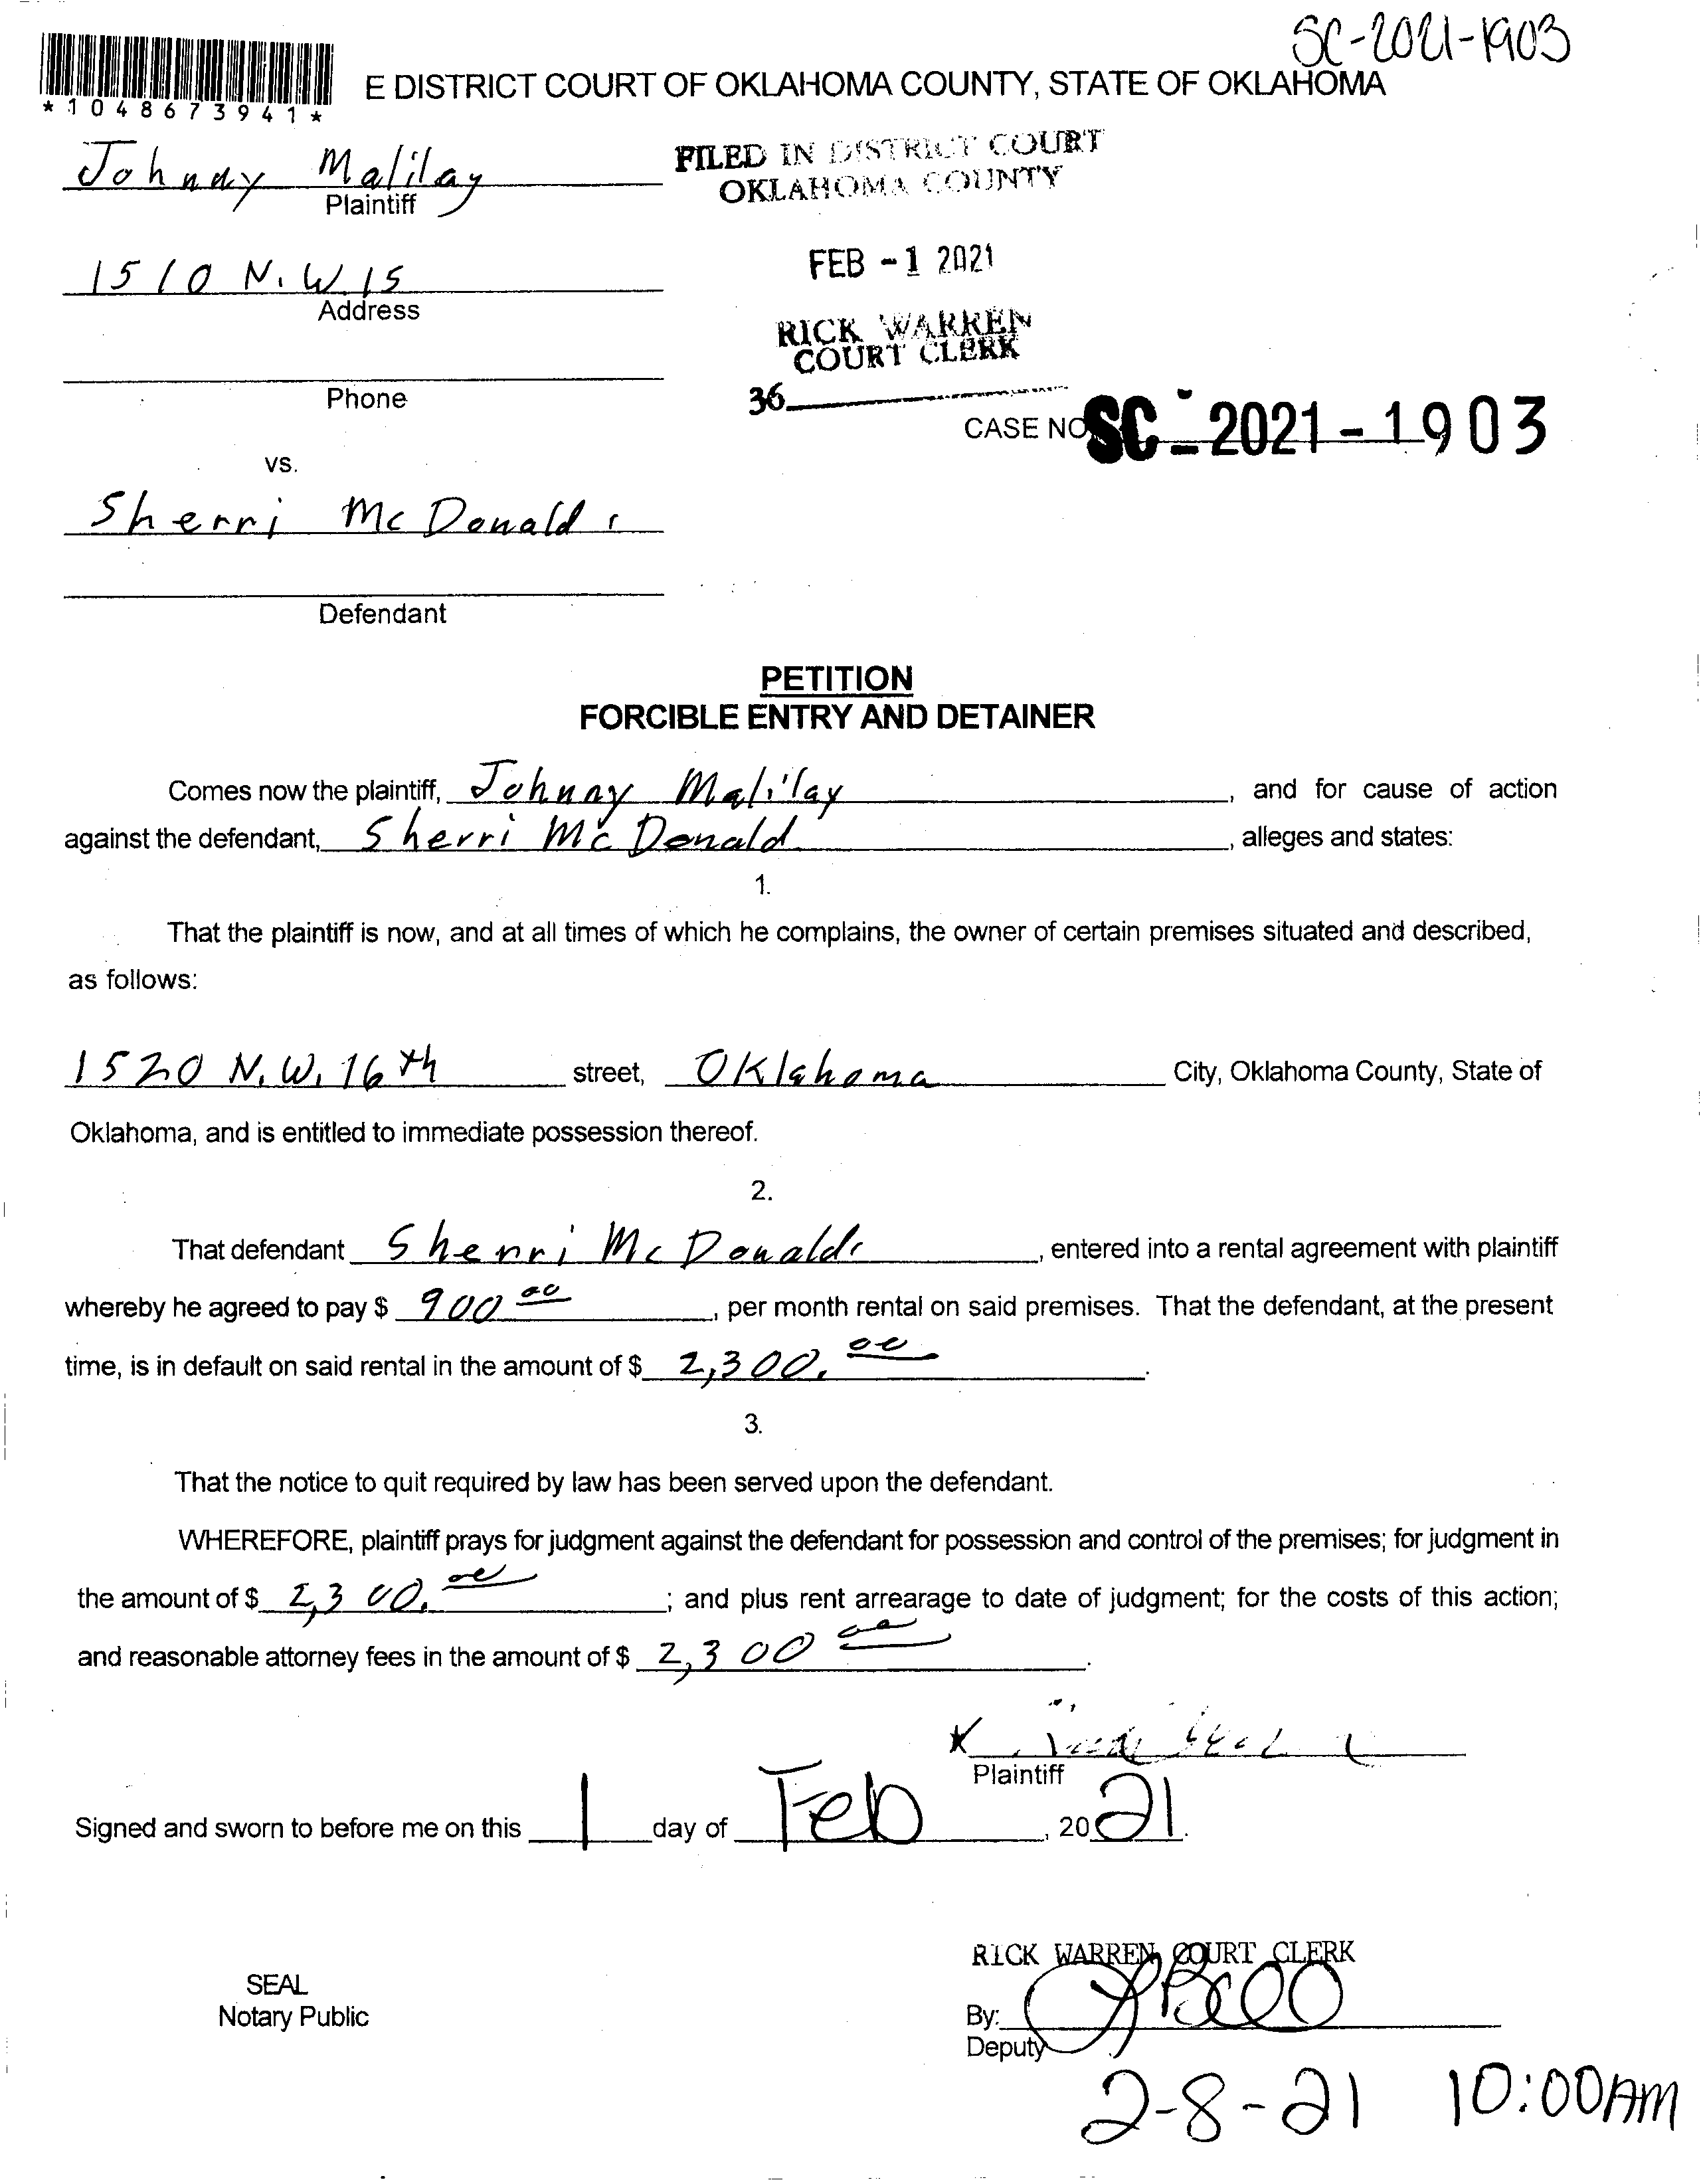 SC-2021-1903
E DISTRICT COURT OF OKLAHOMA COUNTY, STATE OF OKLAHOMA
*1048673941*
Johnny Malilay
Plaintiff
FILED IN DISTRICT COURT
OKLAHOMA COUNTY
1510 N.W 15
Address
FEB -1 2021
RICK WARREN
COURT CLERK
Phone
36
CASE NO SC - 2021 - 1903
vs.
Sherri McDonald
Defendant
PETITION
FORCIBLE ENTRY AND DETAINER
Comes now the plaintiff, Johnny Malilay, and for cause of action
against the defendant, Sherri McDonald, alleges and states:
1.
That the plaintiff is now, and at all times of which he complains, the owner of certain premises situated and described,
as follows:
1520 N.W. 16th street, Oklahoma City, Oklahoma County, State of
Oklahoma, and is entitled to immediate possession thereof.
2.
That defendant Sherri McDonald, entered into a rental agreement with plaintiff
whereby he agreed to pay $ 900 00, per month rental on said premises. That the defendant, at the present
time, is in default on said rental in the amount of $ 2,300. 00.
3.
That the notice to quit required by law has been served upon the defendant.
WHEREFORE, plaintiff prays for judgment against the defendant for possession and control of the premises; for judgment in
the amount of $ 2,300. 00; and plus rent arrearage to date of judgment; for the costs of this action;
and reasonable attorney fees in the amount of $ 2,300 00.
Plaintiff
Signed and sworn to before me on this 1 day of Feb, 2021.
RICK WARREN, COURT CLERK
SEAL
Notary Public
By:
Deputy
2-8-21 10:00AM